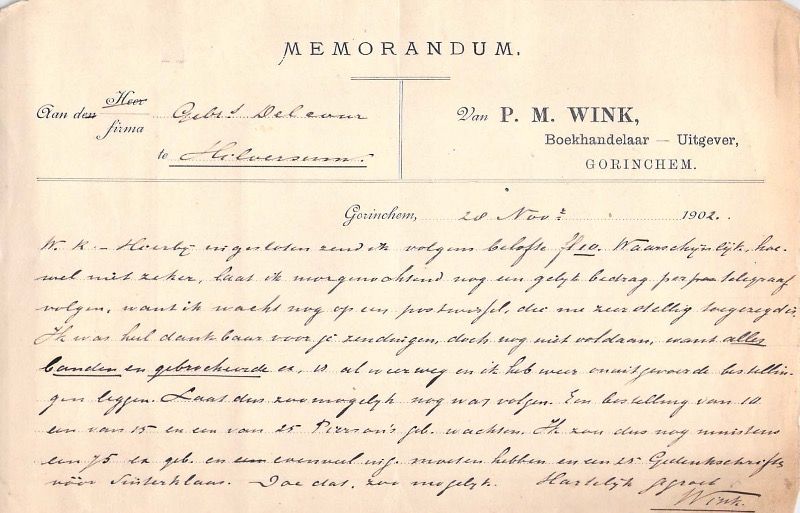 MEMORANDUM.
Aan den Heer
firma Gebrs Delcour
te Hilversum.
Van P. M. WINK,
Boekhandelaar — Uitgever,
GORINCHEM.
Gorinchem, 28 Nov. 1902.
W. K. – Hierbij ingesloten zend ik volgens belofte fl 10. Waarschijnlijk, hoe-
wel niet zeker, laat ik morgenochtend nog een gelijk bedrag per telegraaf
volgen, want ik wacht nog op een postwissel, die me zeer stellig toegezegd is.
Ik was heel dankbaar voor je zendingen, doch nog niet voldaan, want alles
banden en gebrocheerde ex, is al weer weg en ik heb weer onuitgevoerde bestellin-
gen liggen. Laat dus zoo mogelijk nog wat volgen. Een bestelling van 10
een van 15 en een van 25 Pierson's geb. wachten. Ik zou dus nog minstens
een 75 ex geb. en evenveel ing. moeten hebben en een 25 Gedenkschriften
vóór Sinterklaas. Doe dat, zoo mogelijk. Hartelijk gegroet
Wink.